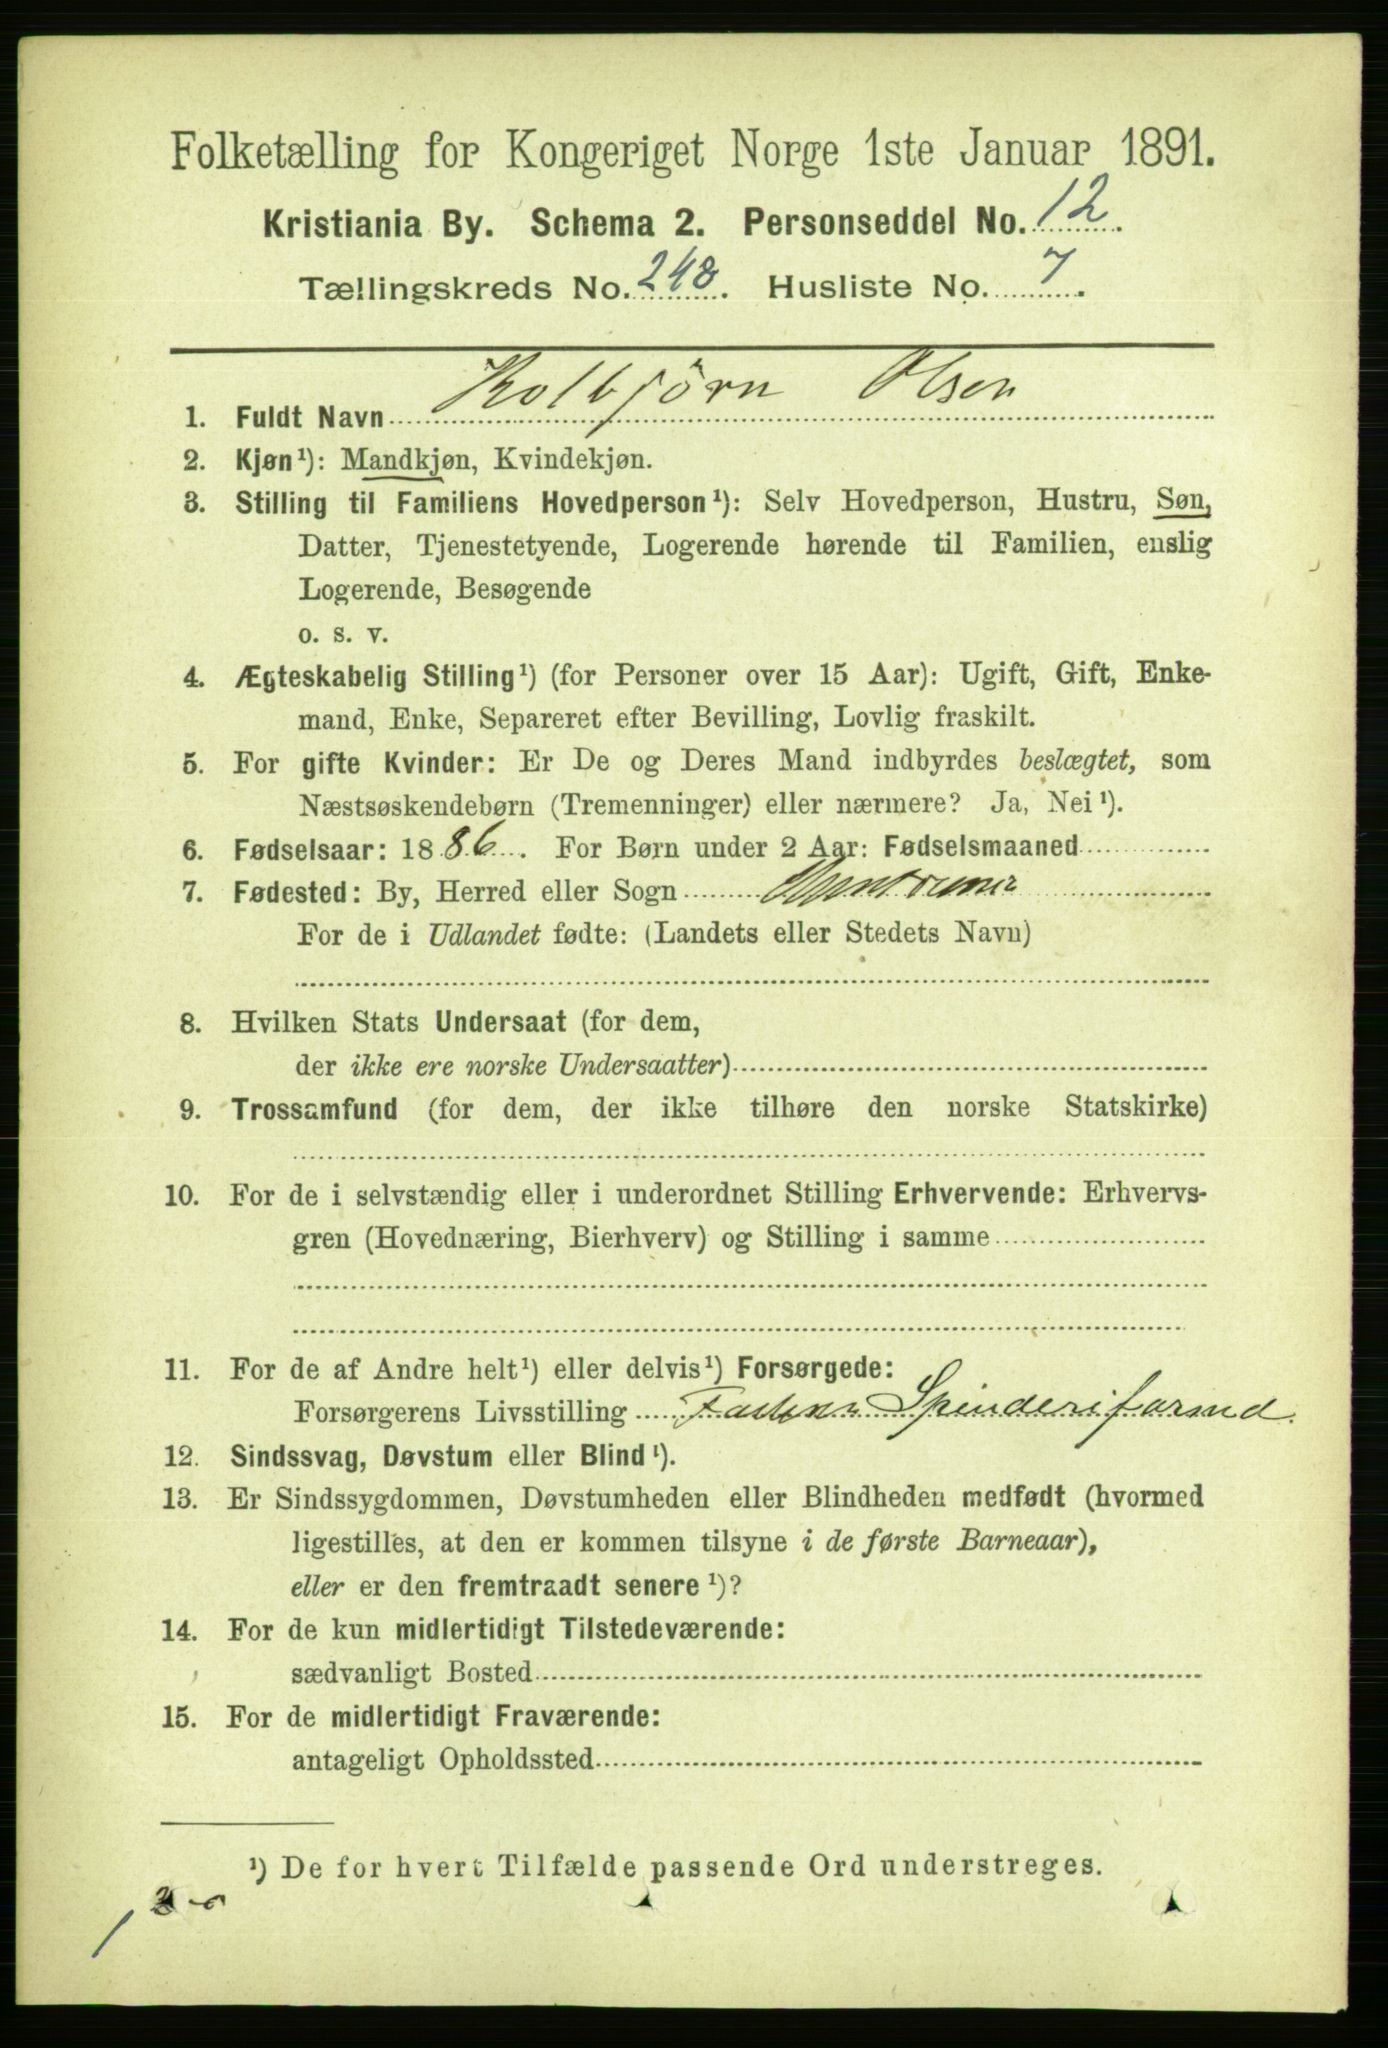 Folketælling for Kongeriget Norge 1ste Januar 1891.
Kristiania By. Schema 2. Personseddel No. 12.
Tællingskreds No. 248. Husliste No. 7.
1. Fuldt Navn Kolbjörn Olsen
2. Kjøn¹): Mandkjøn, Kvindekjøn.
3. Stilling til Familiens Hovedperson¹): Selv Hovedperson, Hustru, Søn,
Datter, Tjenestetyende, Logerende hørende til Familien, enslig
Logerende, Besøgende
o. s. v.
4. Ægteskabelig Stilling¹) (for Personer over 15 Aar): Ugift, Gift, Enke-
mand, Enke, Separeret efter Bevilling, Lovlig fraskilt.
5. For gifte Kvinder: Er De og Deres Mand indbyrdes beslægtet, som
Næstsøskendebørn (Tremenninger) eller nærmere? Ja, Nei¹).
6. Fødselsaar: 1886. For Børn under 2 Aar: Fødselsmaaned
7. Fødested: By, Herred eller Sogn
For de i Udlandet fødte: (Landets eller Stedets Navn)
8. Hvilken Stats Undersaat (for dem,
der ikke ere norske Undersaatter)
9. Trossamfund (for dem, der ikke tilhøre den norske Statskirke)
10. For de i selvstændig eller i underordnet Stilling Erhvervende: Erhvervs-
gren (Hovednæring, Bierhverv) og Stilling i samme
11. For de af Andre helt¹) eller delvis¹) Forsørgede:
Forsørgerens Livsstilling Spinderiformd.
12. Sindssvag, Døvstum eller Blind¹).
13. Er Sindssygdommen, Døvstumheden eller Blindheden medfødt (hvormed
ligestilles, at den er kommen tilsyne i de første Barneaar),
eller er den fremtraadt senere¹)?
14. For de kun midlertidigt Tilstedeværende:
sædvanligt Bosted
15. For de midlertidigt Fraværende:
antageligt Opholdssted
¹) De for hvert Tilfælde passende Ord understreges.